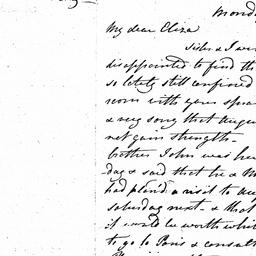 Monda
My dear Eliza
Sister & I wer
disappointed to find th
so lately still confined
room with your spea
& very song that Augu
not gain strength-
brother John was her
day & said that he & M
had plan'd a visit to
saturday next - & that
it would be worth whi
to go to Paris & consult